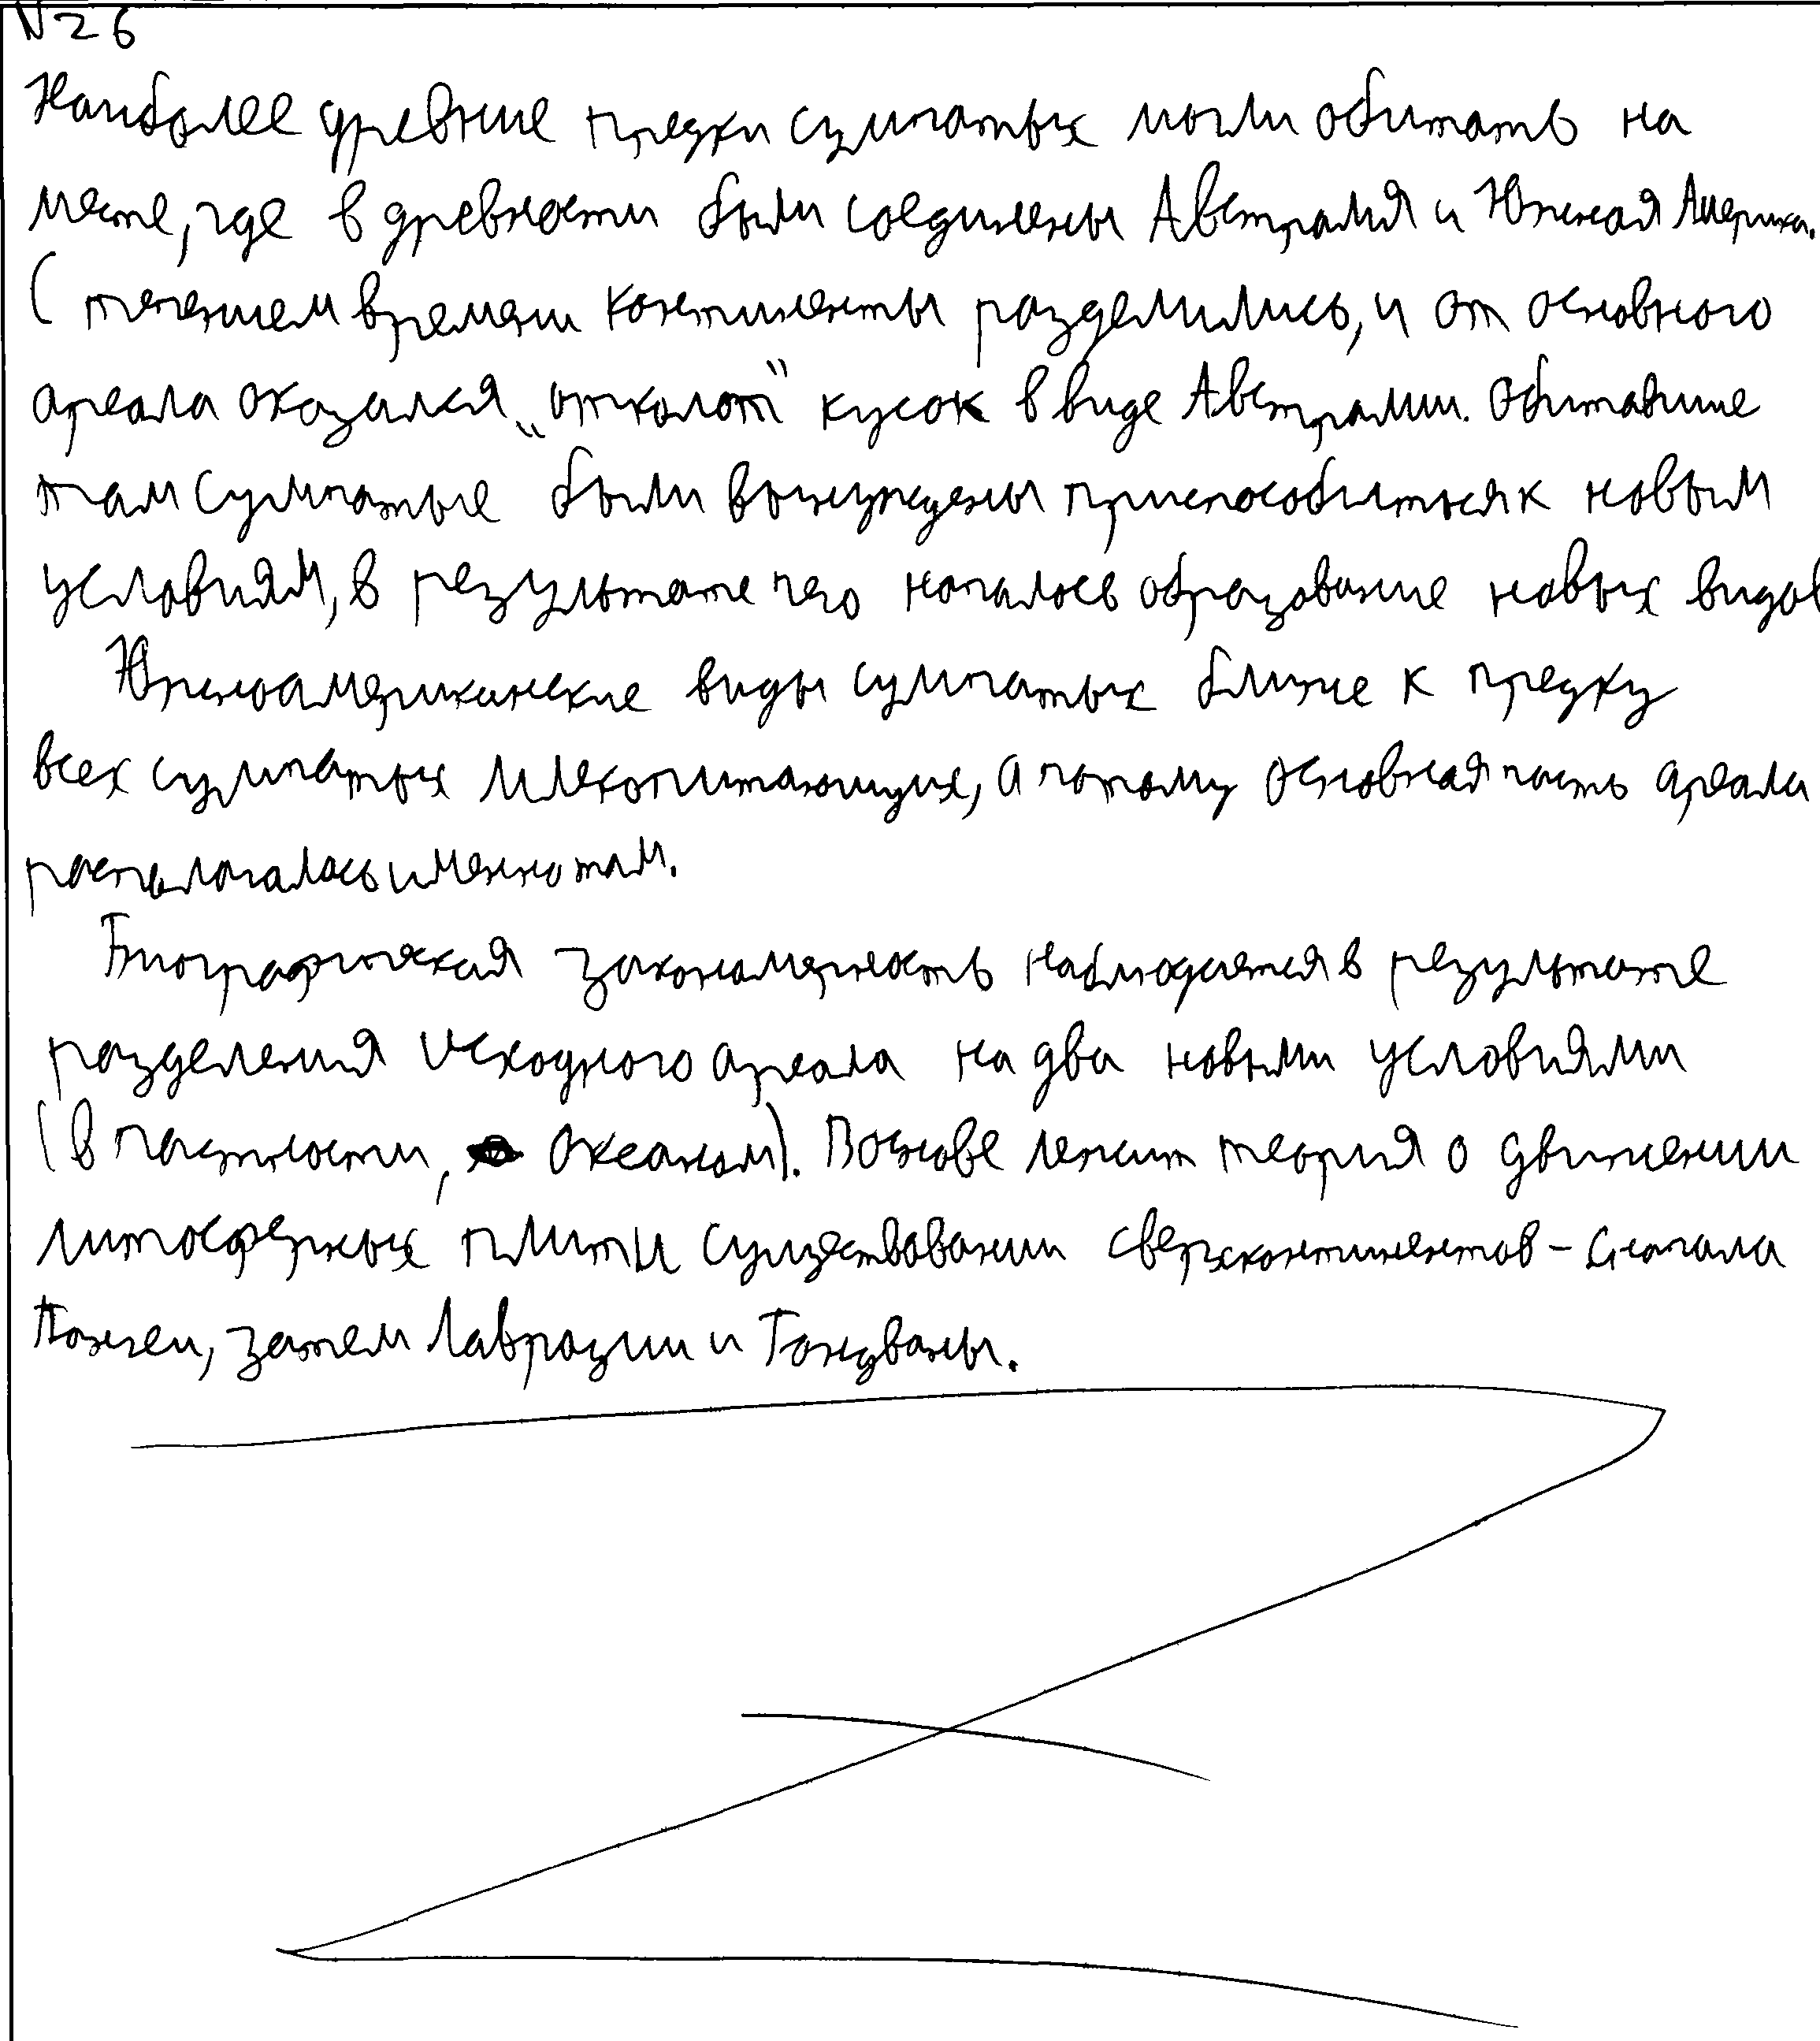 N26
Наиболее древние предки сумчатых могли обитать на
месте, где в древности были соединены Австралия и Южная Америка.
С течением времени континенты разделились, и от основного
ареала оказался „отколот" кусок в виде Австралии. Обитавшие
там сумчатые были вынуждены приспособиться к новым
условиям, в результате чего началось образование новых видов
Южноамериканские виды сумчатых ближе к предку
всех сумчатых млекопитающих, а потому основная часть ареала
распологалась именно там.
Биографическая закономерность наблюдается в результате
разделения исходного ареала на два новыми условиями
(в частности, океаном). В основе лежит теория о движении
литосферных плит и существовании сверхконтинентов – сначала
Пангеи, затем Лавразии и Гондваны.